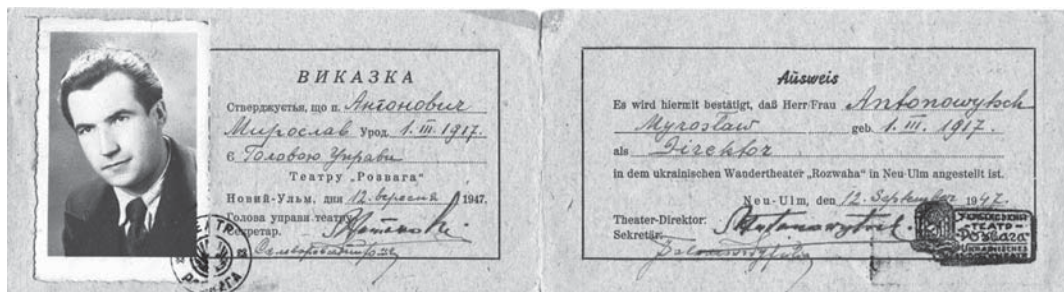 ВИКАЗКА
Стверджується, що п. Антонович
Мирослав Урод. 1. III. 1917.
є Головою Управи
Театру „Розвага"
Новий-Ульм, дня 12. вересня 1947.
Голова управи театру
Секретар.
РОЗВАГА
Ausweis
Es wird hiermit bestätigt, daß Herr/Frau Antonowytsch
Myrosław geb. 1. III. 1917.
als Direktor
in dem ukrainischen Wandertheater „Rozwaha" in Neu-Ulm angestellt ist.
Neu-Ulm, den 12. September 1947.
Theater-Direktor:
Sekretär:
ТЕАТР
Розвага